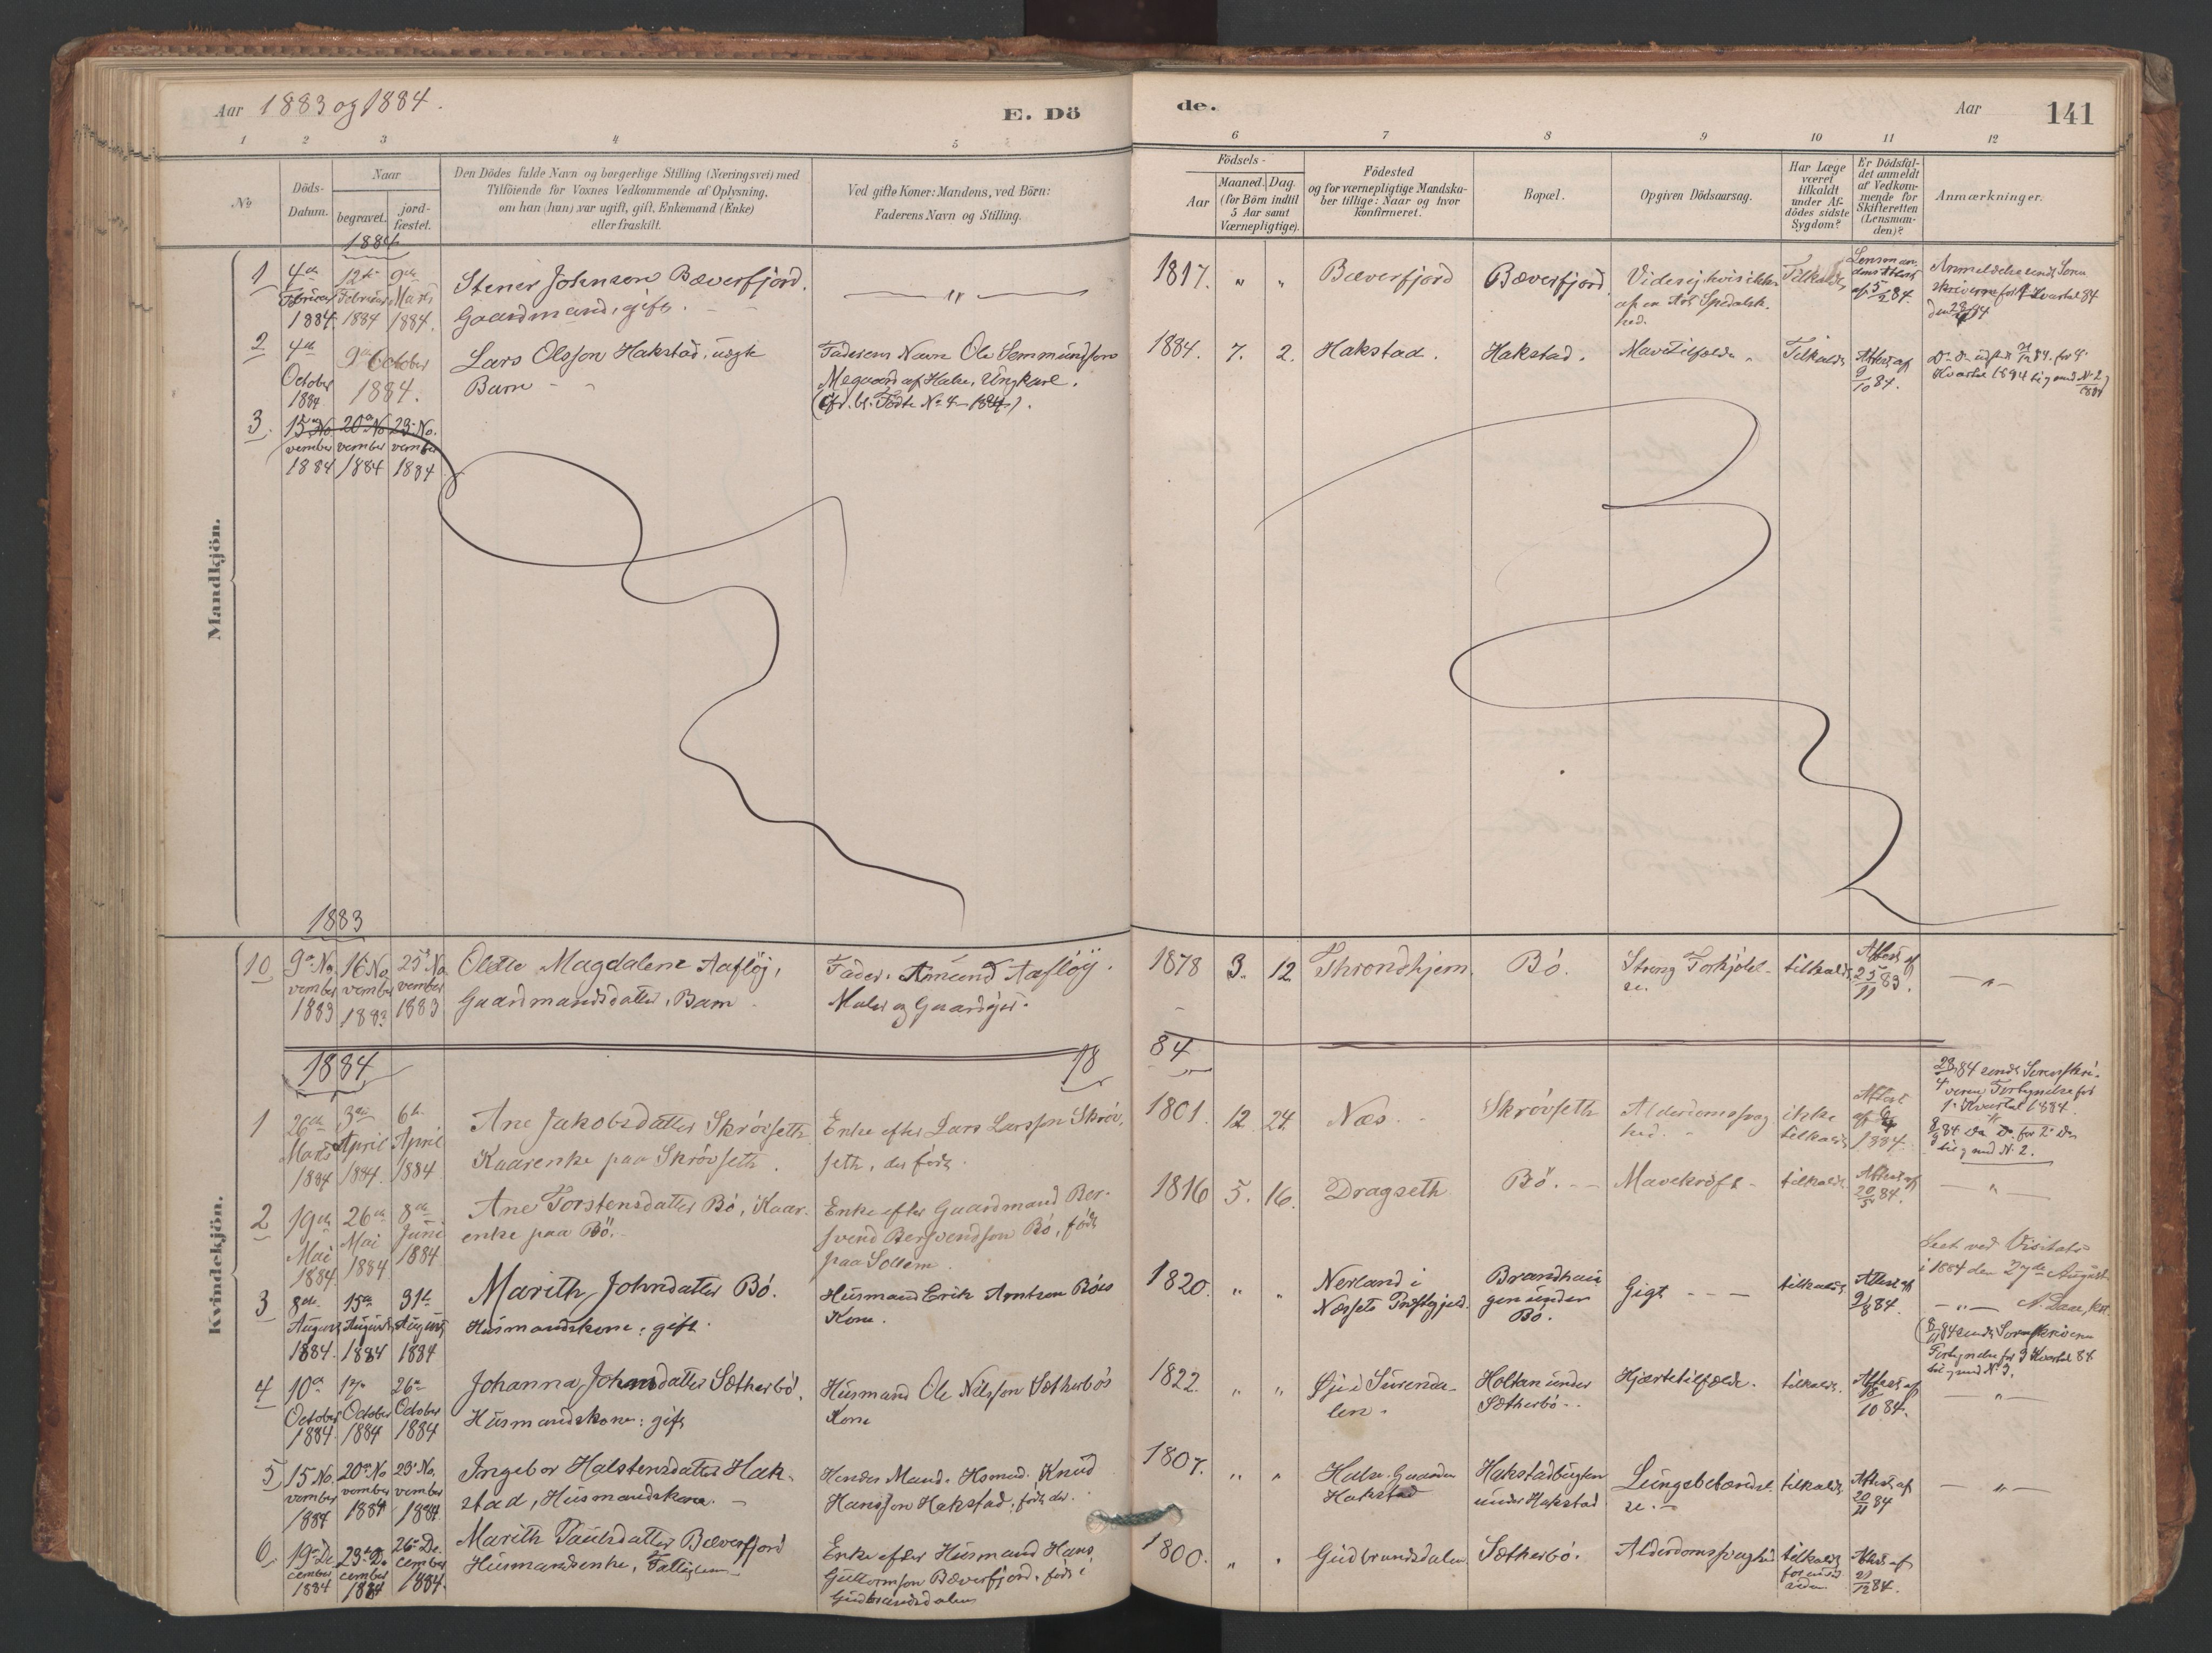 Aar 1883 og 1884.
E. Dö
de.
Aar
141
1 2 3 4 5 6 7 8 9 10 11 12
No
Döds-
Datum.
Naar
begravet.
jord-
fæstet.
Den Dödes fulde Navn og borgerlige Stilling (Næringsvei) med
Tilföiende for Voxnes Vedkommende af Oplysning,
om han (hun) var ugift, gift, Enkemand (Enke)
eller fraskilt.
Ved gifte Koner: Mandens, ved Börn:
Faderens Navn og Stilling.
Födsels-
Aar
Maaned. Dag.
(for Börn indtil
5 Aar samt
Værnepligtige).
Födested
og for værnepligtige Mandska-
ber tillige: Naar og hvor
konfirmeret.
Bopæl.
Opgiven Dödsaarsag.
Har Læge
været
tilkaldt
under Af-
dödes sidste
Sygdom?
Er Dödsfal-
det anmeldt
af Vedkom-
mende for
Skifteretten
(Lensman-
den)?
Anmærkninger.
Mandkjön.
1884
1
4de
Februar
1884
12te
Februar
1884
9de
Marts
1884.
Stener Johnson Bæverfjord.
Gaardmand, gift.
1817. " "
Bæverfjord
Bæverfjord
Vides ej hvis ikke
af en Art Spedalsk-
hed.
Tilkaldt
Lensman-
dens Attest
af 5/2 84.
2
4de
October
1884
9de October
1884.
Lars Olsson Hakstad, uægte
Barn
Faderens Navn Ole Semmundsson
Megaard af Halse, Ungkarl.
(cfr. bl. Födte No 4 1884).
1884. 7. 2.
Hakstad.
Hakstad.
Mavetilfælde
Tilkaldt
Attest af
9/10 84.
3.
15de No-
vember
1884
20de No-
vember
1884
23de No.
vember
1884
Kvindekjön.
1883
10
9de No
vember
1883
16 No
vember
1883
25de No
vember
1883
Olette Magdalene Aaflöj,
Gaardmandsdatter, Barn
Fader: Amund Aaflöÿ.
Maler og Gaardejer.
1878 3. 12
Throndhjem.
Bö.
Streng Forkjölel-
se.
tilkaldt
Attest af
25/11 83.
1884
18
84
1
26de
Marts
1884
3die
April
1884.
6te
April
1884
Ane Jakobsdatter Skrövseth.
Kaarenke paa Skrövseth.
Enke efter Lars Larssen Skröv-
seth, der födt.
1801. 12. 24.
Næs.
Skrövseth
Alderdomssvag-
hed.
ikke
tilkaldt
Attest
1884.
28/4 84 sendt Sorenskri-
veren Fortegnelse for
1ste Kvartal 1884.
2
19de
Mai
1884.
26de
Mai
1884
8de
Juni
1884
Ane Torstensdatter Bö, Kaar-
enke paa Bö.
Enke efter Gaardmand Ber-
svend Bersvendson Bö, födt
paa Sollem.
1816 5. 16.
Dragseth
Bö.
Mavekræft
tilkaldt
Attest af
20/5 84.
3
8de
August
1884.
15de
August
1884
31te
August
1884
Marith Johnsdatter Bö.
Husmandskone: gift.
Husmand Erik Arntsen Böes
Kone.
1820. " "
Nerland i
Næssets Præstegjeld.
Brandhau-
gen under
Bö.
Gigt
tilkaldt
Attest af
9/8 84.
Seet ved Visitats
i 1884 den 27de August
4
10de
October
1884
17de
October
1884
26de
October
1884
Johanna Johnsdatter Sætherbö.
Husmandskone: gift
Husmand Ole Nilsson Sætherbös
Kone
1822. " "
Øje i Surenda-
len.
Holtan under
Sætherbö.
Hjærtetilfælde.
tilkaldt.
Attest af
10 84.
5
15 No.
vember
1884
20de No
vember
1884
23de No.
vember
1884.
Ingebor Halstensdatter Hak-
stad, Husmandskone.
Hendes Mand: Husmd. Knud
Hansson Hakstad, födt der.
1807. " "
Halse. Gaarden
Hakstad
Hakstadbugten
under Hakstad
Lungebetændel-
se.
tilkaldt.
Attest af
20/11 84
6.
19de De
cember
1884
23de De
cember
1884
26de De.
cember
1884.
Marith Paulsdatter Bæverfjord
Husmandsenke, Fattiglem
Enke efter Husmand Hans
Guttormson Bæverfjord, födt i
Gudbrandsdalen
1800. " "
Gudbrandsdalen
Sætherbö.
Alderdomssvaghed
tilkaldt
Attest af
21/12 84.